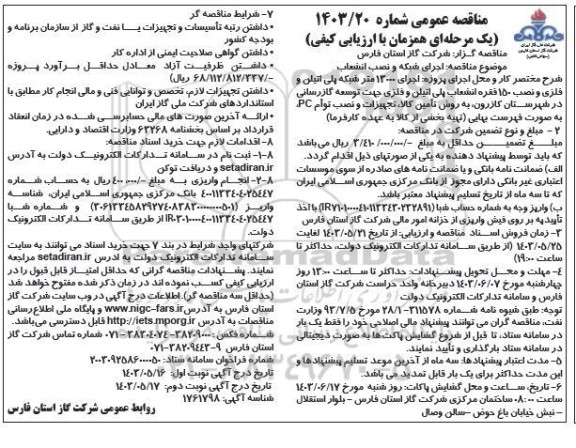 مناقصه عمومی شماره ۱۴۰۳/۲۰
(یک مرحله‌ای همزمان با ارزیابی کیفی)
شرکت ملی گاز ایران
شرکت گاز استان فارس
مناقصه گزار: شرکت گاز استان فارس
موضوع مناقصه: اجرای شبکه و نصب انشعاب
شرح مختصر کار و محل اجرای پروژه: اجرای ۱۳۰۰۰ متر شبکه پلی اتیلن و
فلزی و نصب ۱۵۰ فقره انشعاب پلی اتیلن و فلزی جهت توسعه گازرسانی
در شهرستان کازرون، به روش تأمین کالا، تجهیزات و نصب توأم PC،
به صورت فهرست بهایی (تهیه بخشی از کالا به عهده کارفرما)
۲ – مبلغ و نوع تضمین شرکت در مناقصه:
مبلغ تضمین حداقل به مبلغ ۳/۴۱۰/۰۰۰/۰۰۰– ریال می‌باشد
که باید توسط پیشنهاد دهنده به یکی از صورتهای ذیل اقدام گردد.
الف) ضمانت نامه بانکی و یا ضمانت نامه های صادره از سوی موسسات
اعتباری غیر بانکی دارای مجوز از بانک مرکزی جمهوری اسلامی ایران
که تا سه ماه از تاریخ تسلیم پیشنهاد معتبر باشد.
ب) واریز وجه به شماره حساب شبا با اخذ
تأییدیه بر روی فیش واریزی از خزانه امور مالی شرکت گاز استان فارس
۳– زمان فروش اسناد مناقصه و ارزیابی: از تاریخ ۱۴۰۳/۵/۲۱ لغایت
۱۴۰۳/۵/۲۵ (از طریق سامانه تدارکات الکترونیک دولت، حداکثر تا
ساعت ۱۹:۰۰)
۴– مهلت و محل تحویل پیشنهادات: حداکثر تا ساعت ۱۳:۰۰ روز
چهارشنبه مورخ ۱۴۰۳/۰۶/۰۷ دبیرخانه واحد حراست شرکت گاز استان
فارس و سامانه تدارکات الکترونیک دولت
توجه: طبق شیوه نامه شماره ۳۱۱۵۷۸–۲۸/۱ مورخ ۹۳/۷/۵ وزارت
نفت، مناقصه گران می توانند پیشنهاد مالی اصلاحی خود را فقط یک بار
در سامانه ستاد، تا قبل از شروع گشایش پاکت ها به صورت دیجیتالی
در سامانه ستاد بارگذاری و تأیید نمایند.
۵– مدت اعتبار پیشنهادها سه ماه از آخرین موعد تسلیم پیشنهادها و
این مدت حداکثر برای یک بار قابل تمدید می باشد.
۶– تاریخ، ساعت و محل گشایش پاکات: روز شنبه مورخ ۱۴۰۳/۰۶/۱۷
ساعت ۰۸:۰۰ ساختمان مرکزی شرکت گاز استان فارس – بلوار استقلال
– نبش خیابان باغ حوض –سالن وصال
۷– شرایط مناقصه گر
• داشتن رتبه تأسیسات و تجهیزات یا نفت و گاز از سازمان برنامه و
بودجه کشور
• داشتن گواهی صلاحیت ایمنی از اداره کار
• داشتن ظرفیت آزاد معادل حداقل برآورد پروژه
(۶۸/۱۱۲/۸۱۲/۳۳۷/– ریال)
• داشتن تجهیزات لازم، تخصص و توانایی فنی و مالی انجام کار مطابق با
استانداردهای شرکت ملی گاز ایران
• ارائه آخرین صورت های مالی حسابرسی شده در زمان انعقاد
قرارداد بر اساس بخشنامه ۶۳۲۶۸ وزارت اقتصاد و دارایی.
۸– اقدامات لازم جهت خرید اسناد مناقصه:
۸–۱– ثبت نام در سامانه تدارکات الکترونیک دولت به آدرس
setadiran.ir و دریافت توکن
۸–۲– انجام واریزی به مبلغ ۴۰۰.۰۰۰/– ریال به حساب شماره
۴۰۰۱۱۱۳۴۰۴۰۲۵۴۴۷ بانک مرکزی جمهوری اسلامی ایران، شناسه
واریز و شماره شبا
از طریق سامانه تدارکات الکترونیک
دولت.
شرکتهای واجد شرایط در بند ۷ جهت خرید اسناد می توانند به سایت
سامانه تدارکات الکترونیک دولت به آدرس setadiran.ir مراجعه
نمایند. پیشنهادات مناقصه گرانی که حداقل امتیاز قابل قبول را در
ارزیابی کیفی کسب نموده اند در زمان ذکر شده مفتوح خواهد شد
(حداقل سه مناقصه گر). اطلاعات درج آگهی در وب سایت شرکت گاز
استان فارس به آدرس www.nigc-fars.ir و پایگاه ملی اطلاع‌رسانی
مناقصات به آدرس http://iets.mporg.ir قابل دسترسی می‌باشد.
شماره فکس: ۳۸۲۰۹۰۰۰–۰۷۱ شماره تماس شرکت گاز
استان فارس ۹–۳۸۲۰۹۴۴۳–۰۷۱
شماره فراخوان سامانه ستاد: ۲۰۰۳۰۹۲۵۸۶۰۰۰۰۵۰
تاریخ درج آگهی نوبت اول: ۱۴۰۳/۰۵/۱۶
تاریخ درج آگهی نوبت دوم: ۱۴۰۳/۰۵/۱۷
شناسه آگهی: ۱۷۶۱۷۹۸
روابط عمومی شرکت گاز استان فارس